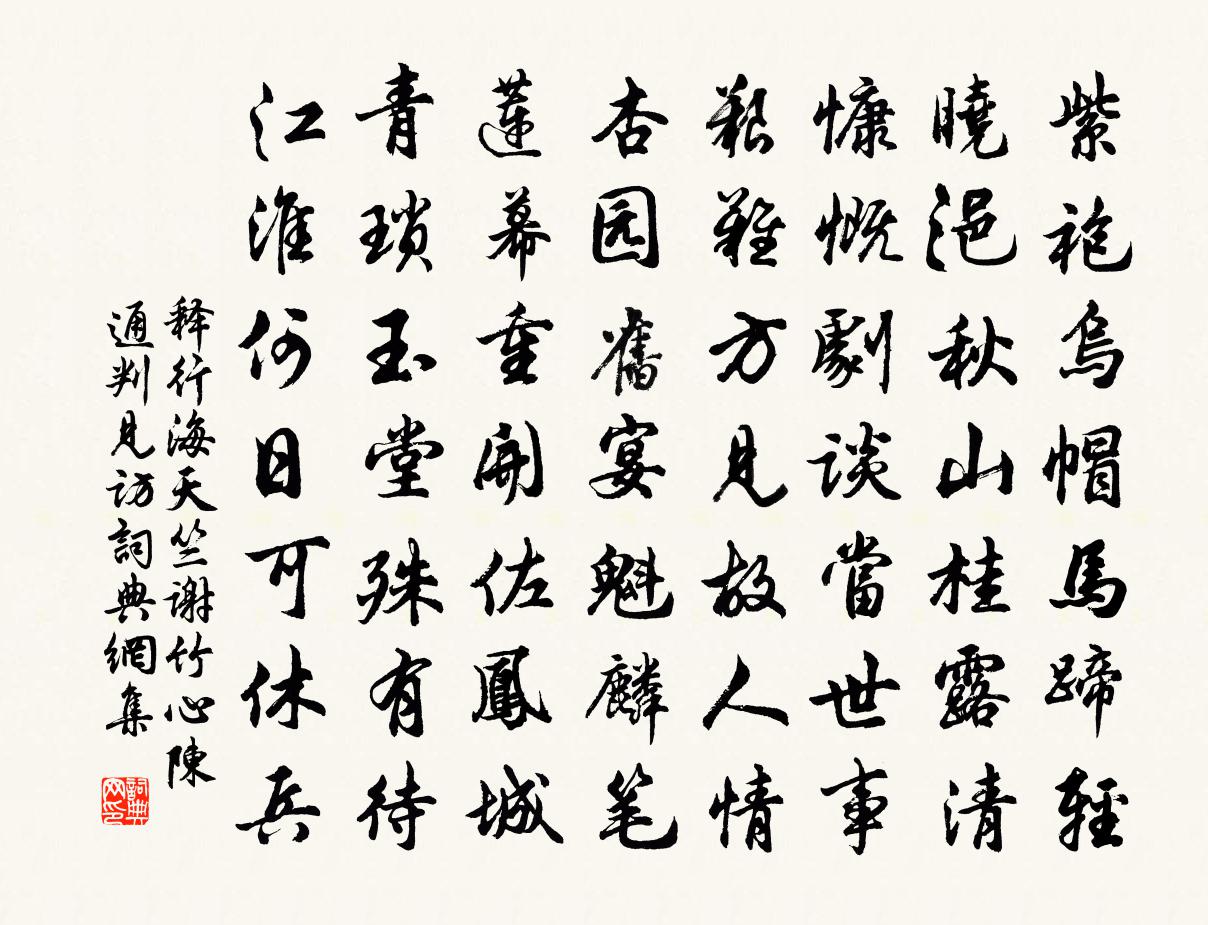 紫袍烏帽馬蹄輕
曉浥秋山桂露清
慷慨劇談當世事
艱難方見故人情
杏园舊宴魁麟笔
蓮幕重開佐鳳城
青瑣玉堂殊有待
江淮何日可休兵
释行海天竺謝竹心陳
通判見訪詞典網集
詞典
网印